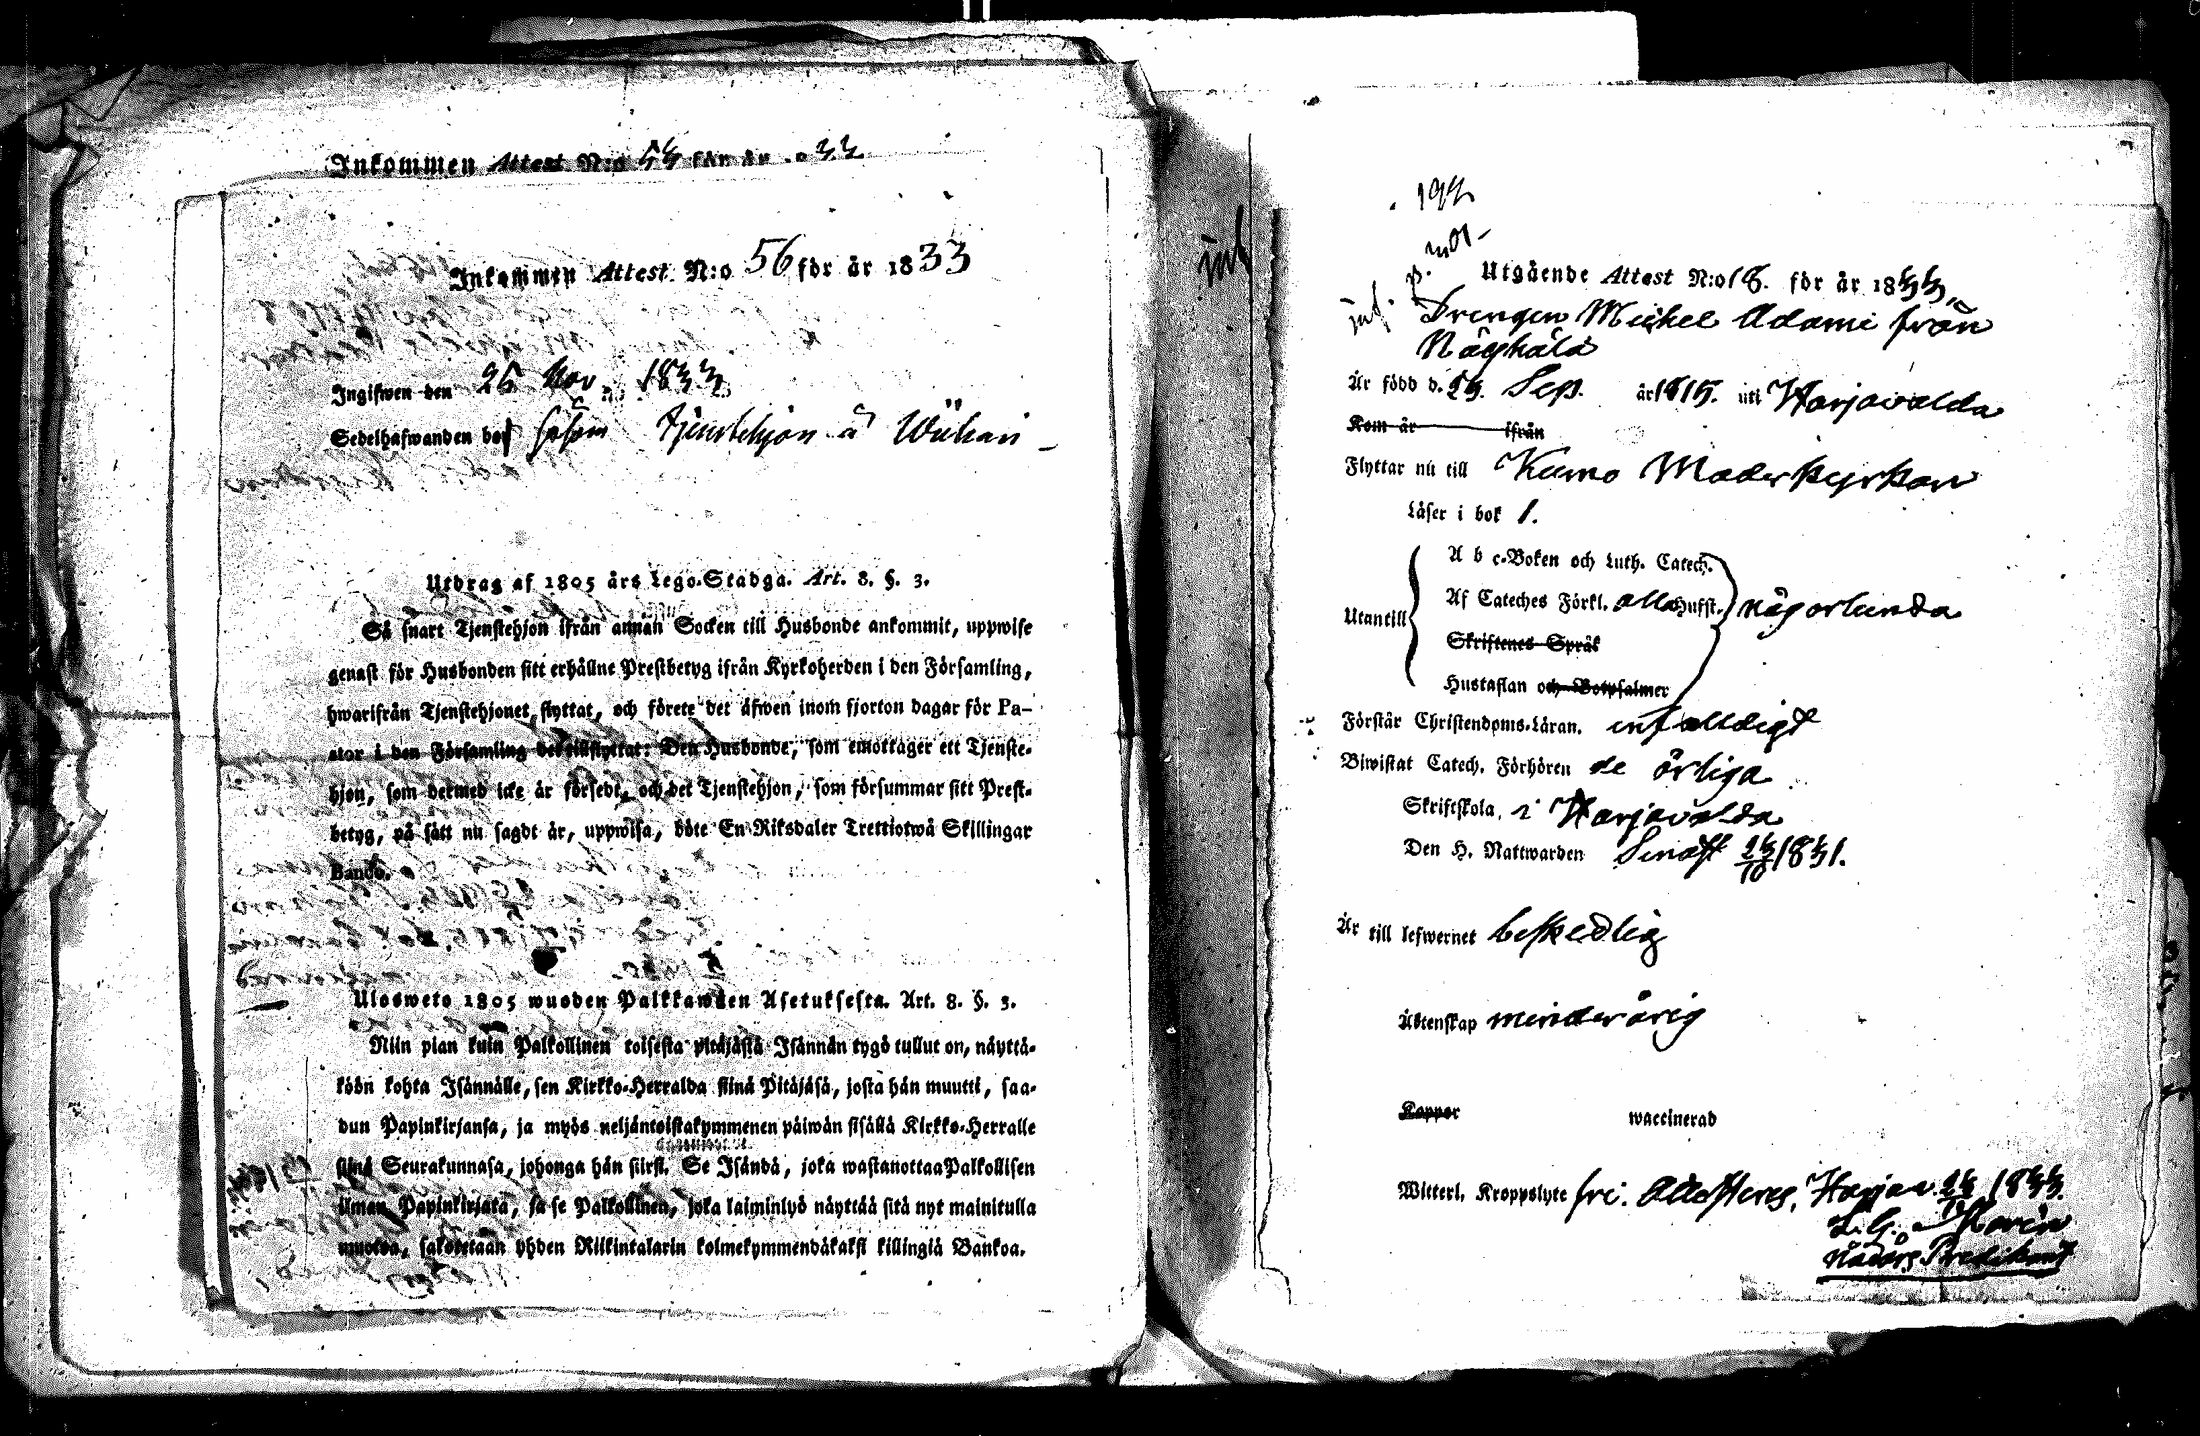 Inkommen Attest N:o 54 för år 1833
Inkommen Attest N:o 56 för år 1833
Ingifwen den 25 Nov. 1833
Sedelhafwanden bor såsom Tjenstehjon å Wiikari
Utdrag af 1805 års Lego-Stadga. Art. 8. §. 3.
Så snart Tjenstehjon ifrån annan Socken till Husbonde ankommit, uppwise
genast för Husbonden sitt erhållne Prestbetyg ifrån Kyrkoherden i den Församling,
hwarifrån Tjenstehjonet flyttat, och förete det äfwen inom fjorton dagar för Pa-
stor i den Församling det tillflyttat: Den Husbonde, som emottager ett Tjenste-
hjon, som dermed icke är försedt, och det Tjenstehjon, som försummar sitt Prest-
betyg, på sätt nu sagdt är, uppwisa, böte En Riksdaler Trettiotwå Skillingar
Banco.
Ulosweto 1805 wuoden Palkkawäen Asetuksesta. Art. 8. §. 3.
Niin pian kuin Palkollinen toisesta pitäjästä Isännän tygö tullut on, näyttä-
köön kohta Isännälle, sen Kirkko-Herralda siinä Pitäjäsä, josta hän muutti, saa-
dun Papinkirjansa, ja myös neljäntoistakymmenen päiwän sisällä Kirkko-Herralle
siinä Seurakunnasa, johonga hän siirsi. Se Isändä, joka wastanottaa Palkollisen
ilman Papinkirjata, ja se Palkollinen, joka laiminlyö näyttää sitä nyt mainitulla
muotoa, sakotetaan yhden Riikintalarin kolmekymmendäkaksi killingiä Bankoa.
Utgående Attest N:o 18. för år 1833,
Drengen Michel Adami från
Näyhälä
Är född d. 23. Sep. år 1815. uti Harjavalda
Kom år ifrån
Flyttar nu till Kumo Moderkyrkan
Läser i bok 1.
A b c-Boken och Luth. Catech.
Utantill Af Cateches Förkl. alla Hufst. någorlunda
Skriftenes Språk
Hustaflan och Botpsalmer
Förstår Christendoms-Läran. enfalldigt
Biwistat Catech. Förhören de årliga
Skriftskola, i Harjavalda
Den H. Nattwarden Sinast 23/10 1831.
Är till lefwernet beskedlig
Äktenskap minderårig
Koppor waccinerad
Witterl. Kroppslyte fri. Attesteras, Harjav. 1833.
Nådårs Predikant